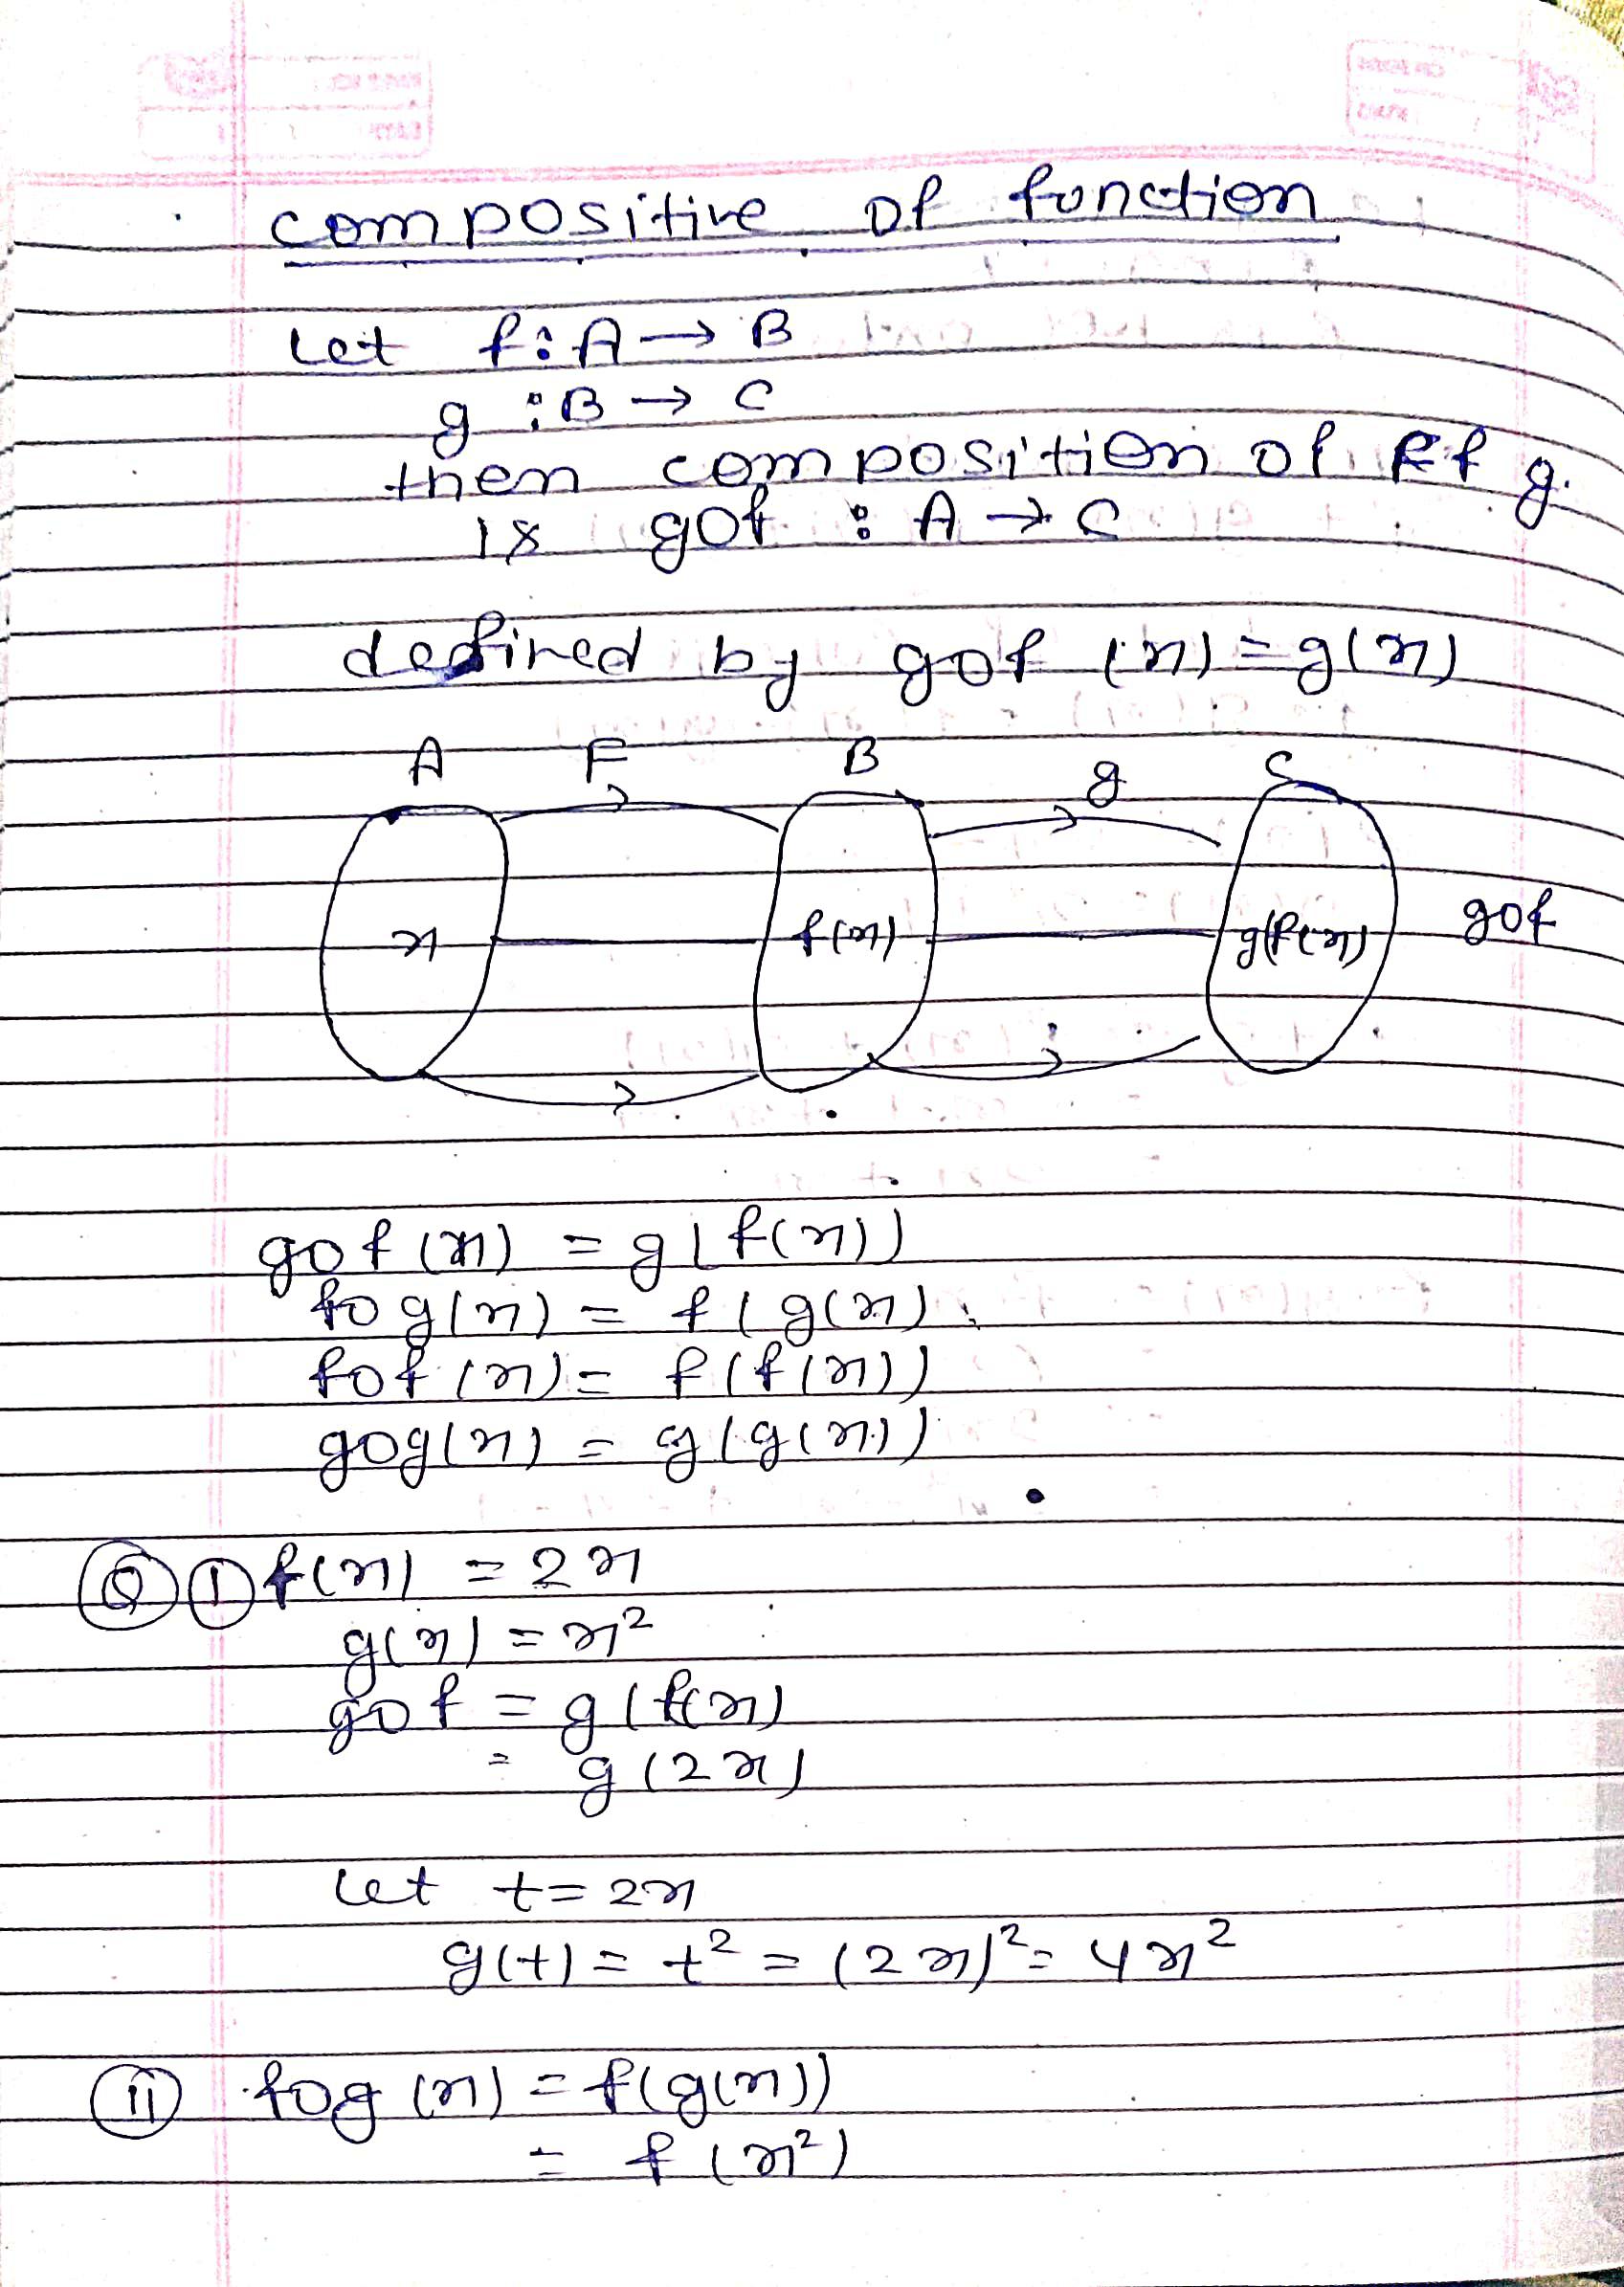 compositive of function
Let f : A → B
g : B → C
then composition of f f g.
is gof : A → C
defined by gof (x) = g(x)
A F B g C
x f(x) g(f(x) gof
gof (x) = g(f(x))
fog(x) = f(g(x)
fof (x) = f(f(x))
gog(x) = g(g(x))
Q I f(x) = 2x
g(x) = x²
gof = g(f(x)
= g(2x)
Let t = 2x
g(t) = t² = (2x)² = 4x²
ii fog (x) = f(g(x))
= f(x²)